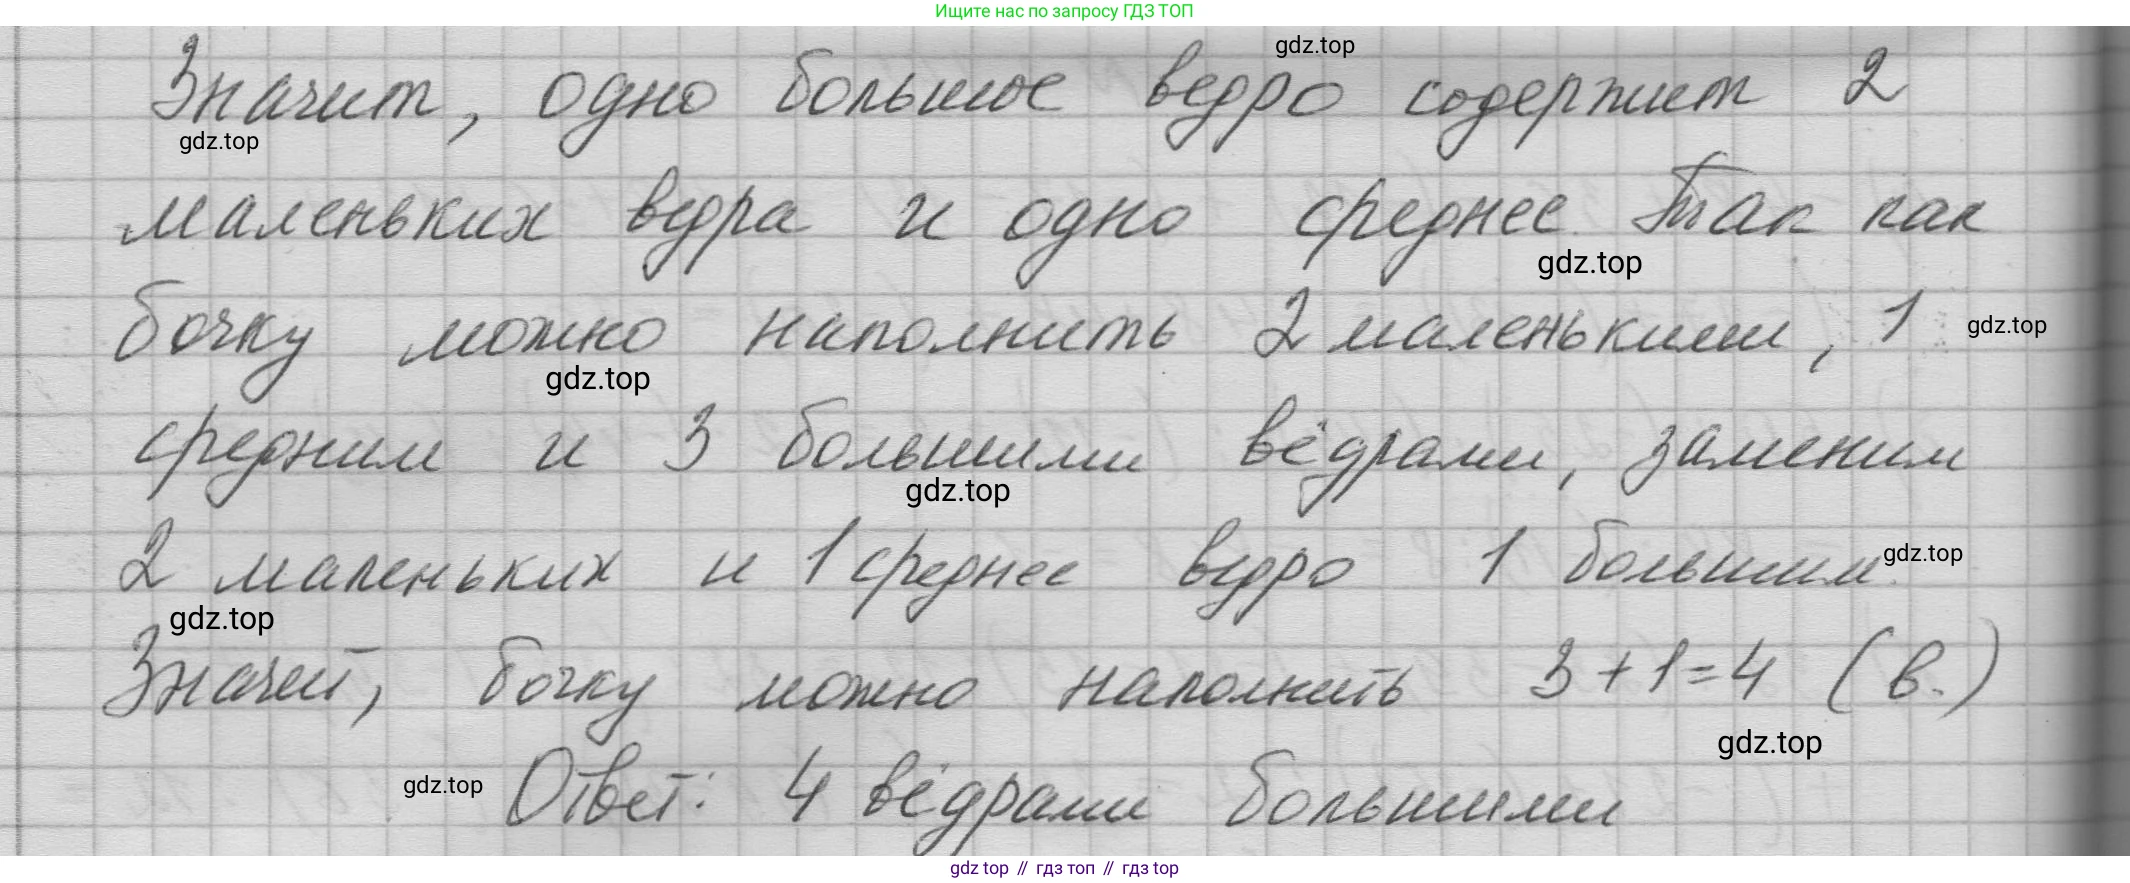 Ищите нас по запросу ГДЗ ТОП
gdz.top
Значит, одно большое ведро содержит 2
gdz.top
маленьких ведра и одно среднее. Так как
gdz.top
бочку можно наполнить 2 маленькими, 1
gdz.top
gdz.top
средним и 3 большими вёдрами, заменим
gdz.top
2 маленьких и 1 среднее ведро 1 большим.
gdz.top
gdz.top
Значит, бочку можно наполнить 3+1=4 (в.)
gdz.top
gdz.top
Ответ: 4 вёдрами большими
gdz top // гдз топ // гдз top